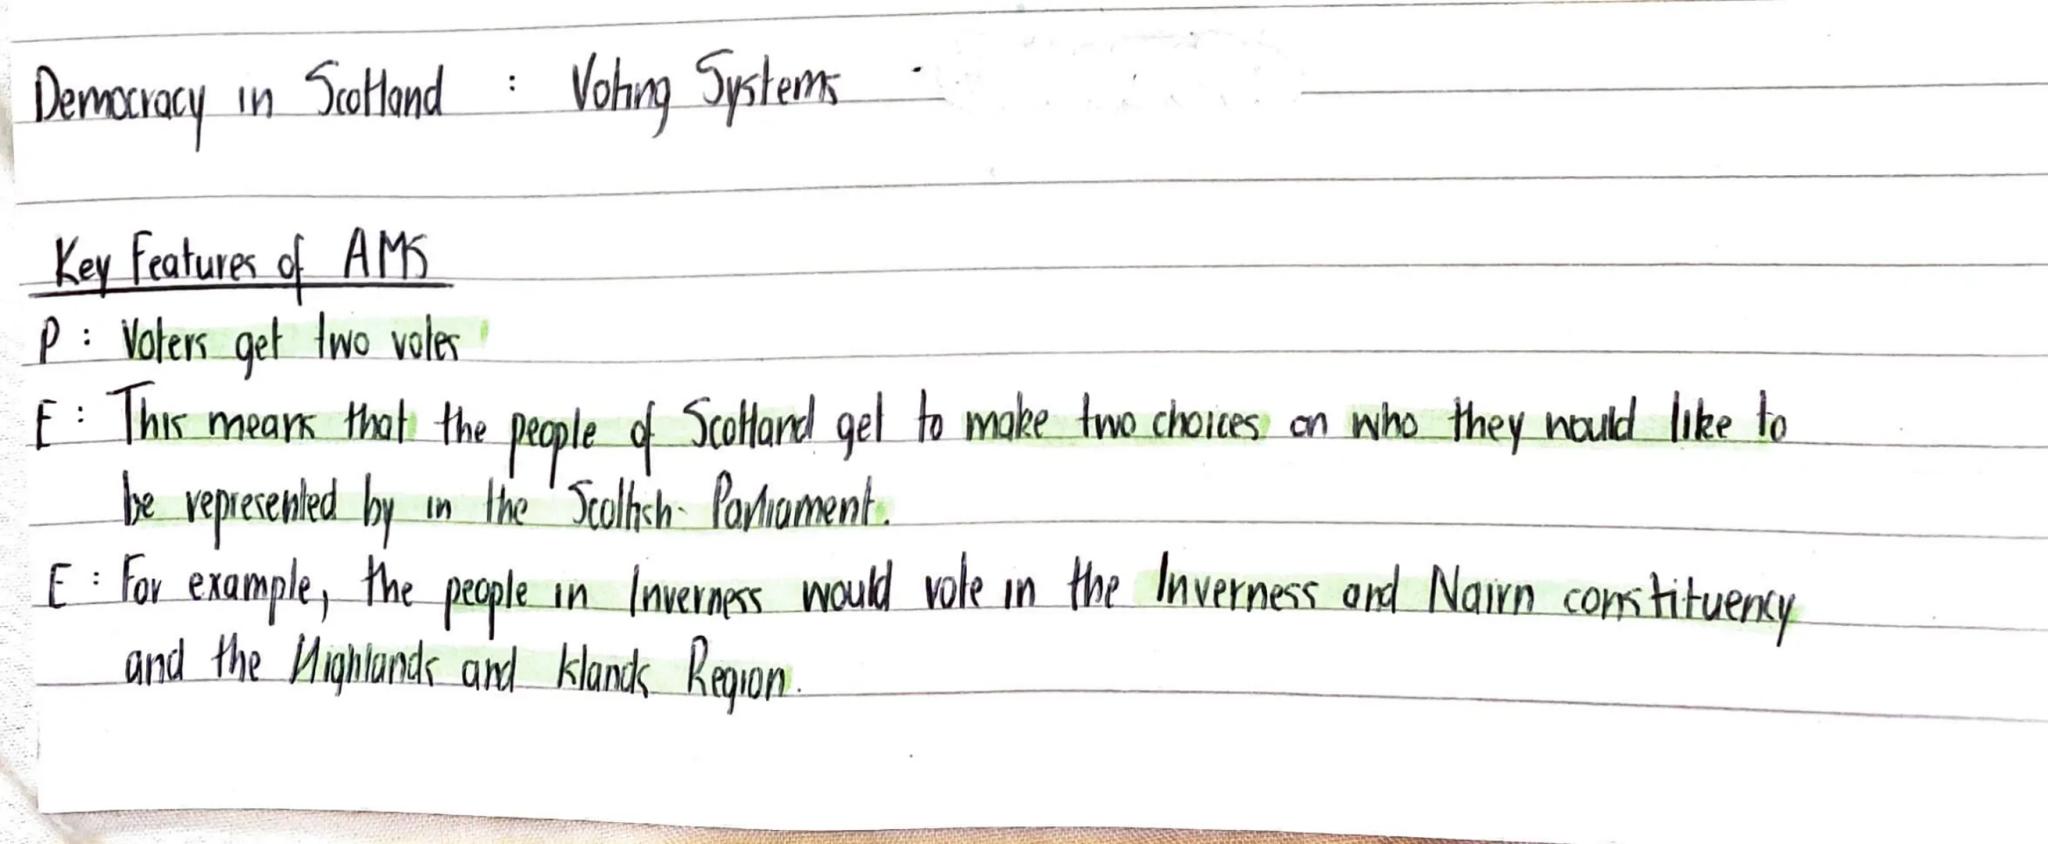 Democracy in Scotland : Voting Systems
Key Features of AMS
P : Voters get two votes
E : This means that the people of Scotland get to make two choices on who they would like to
be represented by in the Scottish Parliament.
E : For example, the people in Inverness would vote in the Inverness and Nairn constituency
and the Highlands and Islands Region.